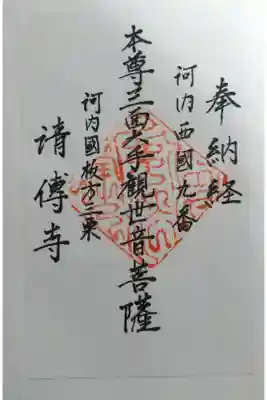 奉納経
河内西國九番
本尊三面六手観世音菩薩
河内國枚方三栗
清傳寺